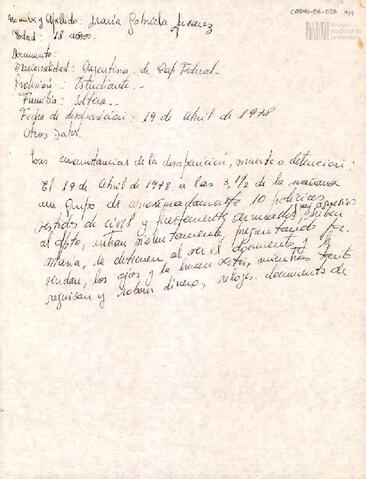 CADHU-DB-026 4/9
Archivo
Nacional de
la Memoria
Nombre y Apellido: María Gabriela Juarez
Edad: 18 años.
Documento:
Nacionalidad: Argentina. de Cap Federal.
Profesión: Estudiante.
Familia: Soltera.
Fecha de desaparición: 19 de Abril de 1978
Otros Datos.
Las circunstancias de la desaparición, muerte o detención:
El 19 de Abril de 1978 a las 3,1/2 de la mañana
un grupo de aproximadamente 10 policías
vestidos de civil y fuertemente armados, muy agresivos suben
al dpto, entran violentamente, preguntando por
María, la detienen al ver el documento y le
vendan, los ojos y la hacen vestir, mientras tanto
requisan y roban dinero, relojes. documento de